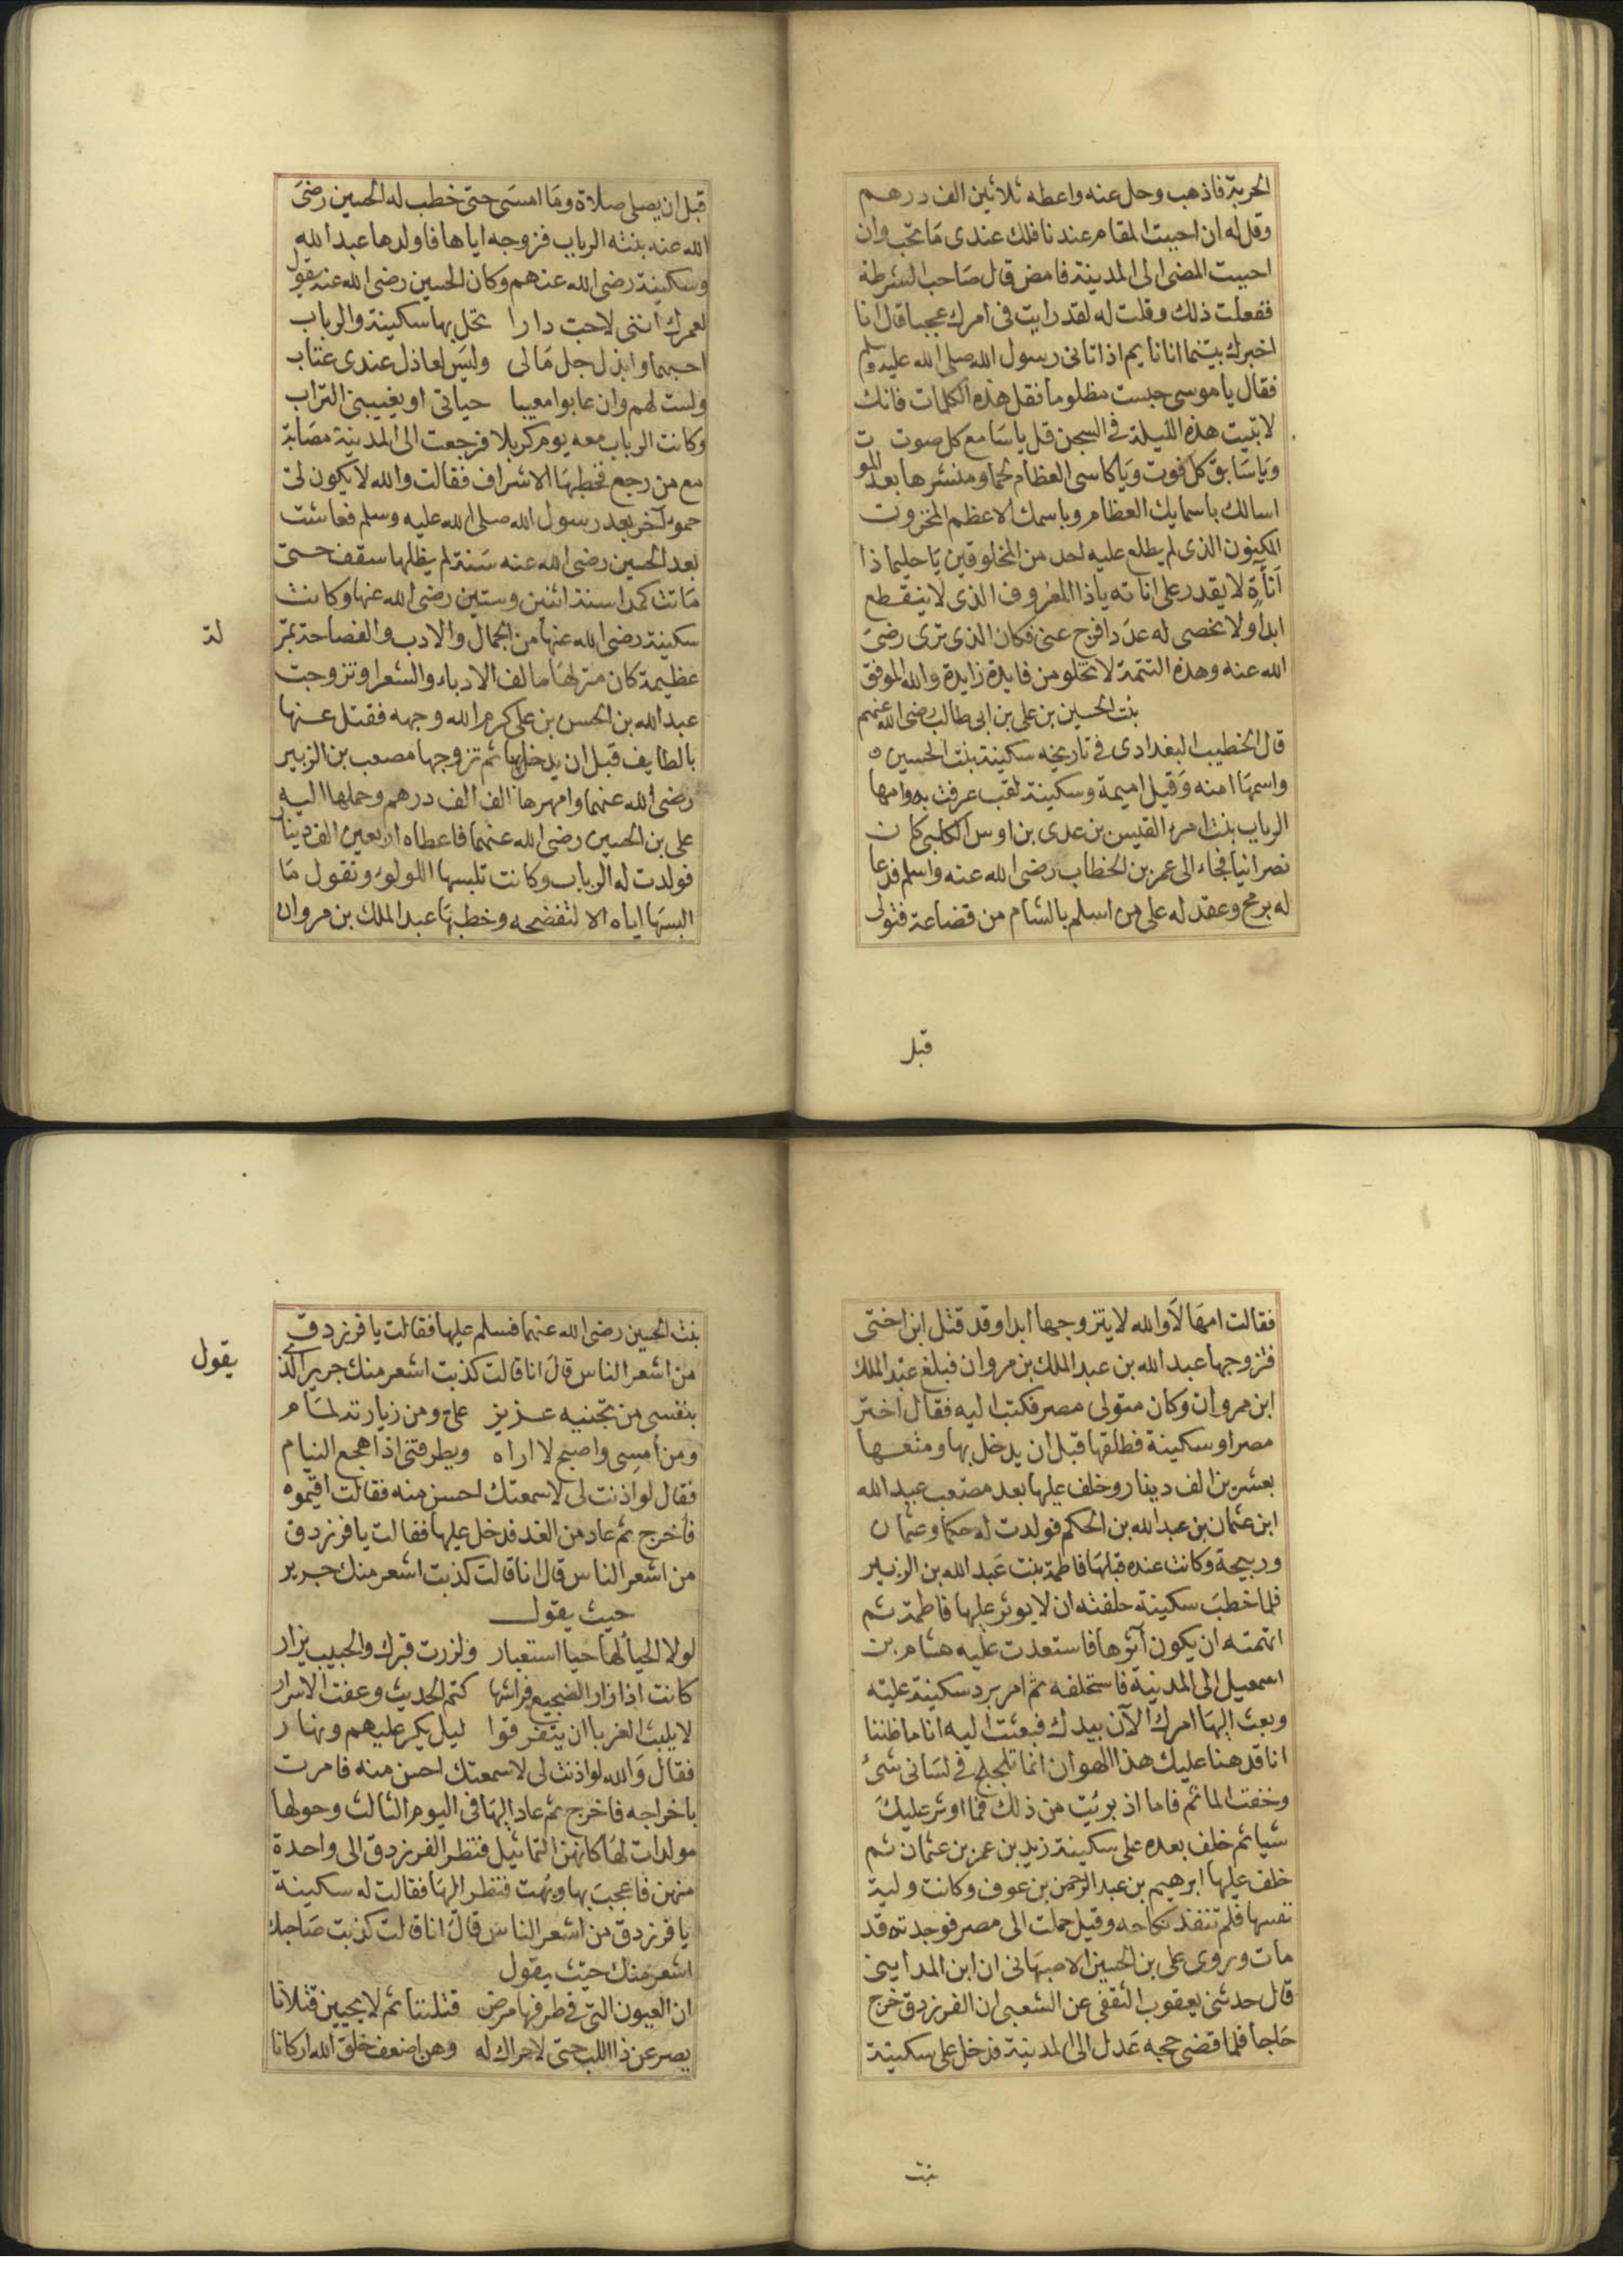 الحربة فاذهب وحل عنه واعطه ثلاثين الف درهم
وقل له ان احببت المقام عندنا فلك عندى مَا تحب وان
احببت المضى الى المدينة فامض قال صَاحب الشرطة
ففعلت ذلك وقلت له لقد رايت فى امرك عجبا قال انا
اخبرك بينما انا نايم اذ اتانى رسول الله صلى الله عليه وسلم
فقال يا موسى حبست مظلوما فقل هذه الكلمات فانك
لا تبيت هذه الليلة فى السجن قل يا سَامع كل صوت
وَيا سَابق كل فوت وَيا كاسى العظام لحما ومنشرها بعد الموت
اسالك باسمايك العظام وباسمك الاعظم المخزون
المكنون الذى لم يطلع عليه احد من المخلوقين يَا حليما ذا
اَناةٍ لا يقدر على اناته يا ذا المعروف الذى لا ينقطع
ابدا ولا يحصى له عدَدا فرج عنى فكان الذى ترى رضىَ
الله عنه وهذه التتمة لا تخلو من فايدة زايدة والله الموفق
بنت الحسين بن على بن ابى طالب رضى الله عنهم
قال الخطيب البغدادى فى تاريخه سكينة بنت الحسين
واسمهَا امنه وَقيل اميمة وسكينة لقب عرفت به وامها
الرباب بنت امرء القيس بن عدى بن اوس الكلبى كان
نصرانيا فجاء الى عمر بن الخطاب رضى الله عنه واسلم فدعا
له برمح وعقد له على من اسلم بالشام من قضاعة فتولى
قبل
قبل ان يصلى صلاة ومَا امسَى حتى خطب له الحسين رضىَ
الله عنه بنته الرباب فزوجه اياها فاولدها عبد الله
وسكينة رضى الله عنهم وكان الحسين رضى الله عنه يقول
لعمرك اننى لاحب دارا تحل بها سكينة والرباب
احبهما وابذل جل مَالى وليسَ لعاذل عندى عتاب
ولست لهم وان عابوا معيبا حياتى او يغيبنى التراب
وكانت الرباب معه يوم كربلا فرجعت الى المدينة مصَابة
مع من رجع فخطبهَا الاشراف فقالت والله لا يكون لى
حموٌ آخر بعد رسول الله صلى الله عليه وسلم فعاشت
بعد الحسين رضى الله عنه سَنة لم يظلها سقف حتى
مَاتت كمدا سنة اثنين وستين رضى الله عنها وكانت
سكينة رضى الله عنها من الجمال والادب والفصاحة بمنز
لة
عظيمة كان منزلهَا مالف الادباء والشعرا وتزوجت
عبد الله بن الحسن بن على كرم الله وجهه فقتل عنها
بالطايف قبل ان يدخل بها ثم تزوجها مصعب بن الزبير
رضى الله عنهما وامهرها الف الف درهم وحملها اليه
على بن الحسين رضى الله عنهما فاعطاه اربعين الف دينار
فولدت له الرباب وكانت تلبسها اللولوء وتقول مَا
البسهَا اياه الا لتفضحه وخطبهَا عبد الملك بن مروان
فقالت امهَا لاَ والله لا يتزوجها ابدا وقد قتل ابن اختى
فتزوجها عبد الله بن عبد الملك بن مروان فبلغ عبد الملك
ابن مروان وكان متولى مصر فكتب اليه فقال اختر
مصر او سكينة فطلقها قبل ان يدخل بها ومتعها
بعشرين الف دينار وخلف عليها بعد مصعب عبد الله
ابن عثمان بن عبد الله بن الحكم فولدت له حكما وعثمان
وربيحة وكانت عنده قبلهَا فاطمة بنت عَبد الله بن الزبير
فلما خطبَ سكينة حلفته ان لا يوثر عليها فاطمة ثم
اتهمته ان يكون آثرها فاستعدت عليه هشام بن
اسمعيل الى المدينة فاستحلفه ثم امر برد سكينة عليه
وبعث اليهَا امرك الآن بيدك فبعثت اليه انا ما ظننا
انا قد هنا عليك هذا الهوان انما تلجلج فى لسَانى شىء
وخفت الماثم فاما اذ برئيت من ذلك فما اوثر عليكَ
شيا ثم خلف بعده على سكينة زيد بن عمر بن عثمان ثم
خلف عليها ابرهيم بن عبد الرحمن بن عوف وكانت ولية
نفسها فلم تنفذ نكاحه وقيل حملت الى مصر فوجدته قد
مات وروى على بن الحسين الاصبهَانى ان ابن المداينى
قال حدثنى يعقوب الثقفى عن الشعبى ان الفرزدق خرج
حَاجا فلما قضى حجه عَدل الى المدينة فدخل على سكينة
بنت
بنت الحسين رضى الله عنهما فسلم عليها فقالت يا فرزدق
من اشعر الناس قال انا قالت كذبت اشعر منك جرير الذى
يقول
بنفسى من تجنيه عزيز علىّ ومن زيارته لمَام
ومن أمسى واصبح لا اراه ويطرقنى اذا هجع النيام
فقال لو اذنت لى لاسمعتك احسن منه فقالت اقيموه
فأخرج ثم عاد من الغد فدخل عليها فقالت يا فرزدق
من اشعر الناس قال انا قالت كذبت اشعر منك جرير
حيث يقول
لولا الحياُ لهَا حيا استعبار ولزرت قبرك والحبيب يزار
كانت اذا زار الضجيع فراشها كتم الحديث وعفت الاسرار
لا يلبث الغربا ان يتفرقوا ليل يكر عليهم ونهار
فقال وَالله لو اذنت لى لاسمعتك احسن منه فامرت
باخراجه فاخرج ثم عاد اليهَا فى اليوم الثالث وحولها
مولدات لهَا كانهنّ التماثيل فنظر الفرزدق الى واحدة
منهن فاعجبَ بها وبهت فنظر اليهَا فقالت له سكينة
يا فرزدق من اشعر الناس قالَ انا قالت كذبت صَاحبك
اشعر منك حيث يقول
ان العيون التى فى طرفها مرض قتلننا ثم لا يحيين قتلانا
يصرعن ذا اللب حتى لا حراك له وهن اضعف خلق الله اركانا